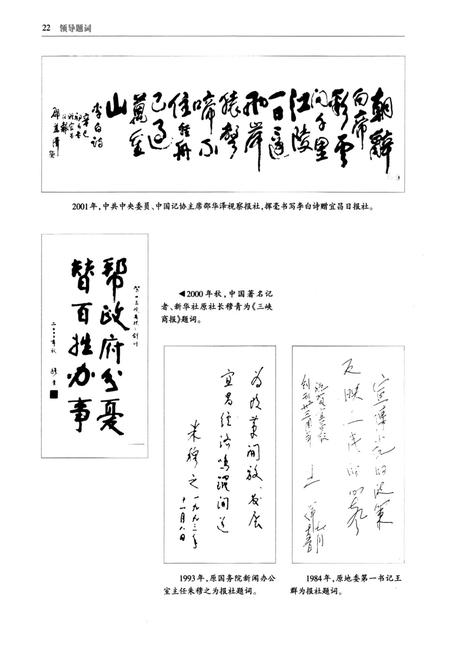 22 领导题词
朝辞
白帝
彩云
间千里
江陵
一日还
两岸
猿声
啼不
住轻舟
已过
万重
山
李白诗
2001年,中共中央委员、中国记协主席邵华泽视察报社,挥毫书写李白诗赠宜昌日报社。
帮政府分忧
替百姓办事
二〇〇〇年秋 穆青
◀2000年秋,中国著名记
者、新华社原社长穆青为《三峡
商报》题词。
为改革开放、发展
宜昌经济鸣锣开道
朱穆之 一九九三年
十一月八日
1993年,原国务院新闻办公
室主任朱穆之为报社题词。
宣传小平的决策
反映一线的
1984年,原地委第一书记王
群为报社题词。